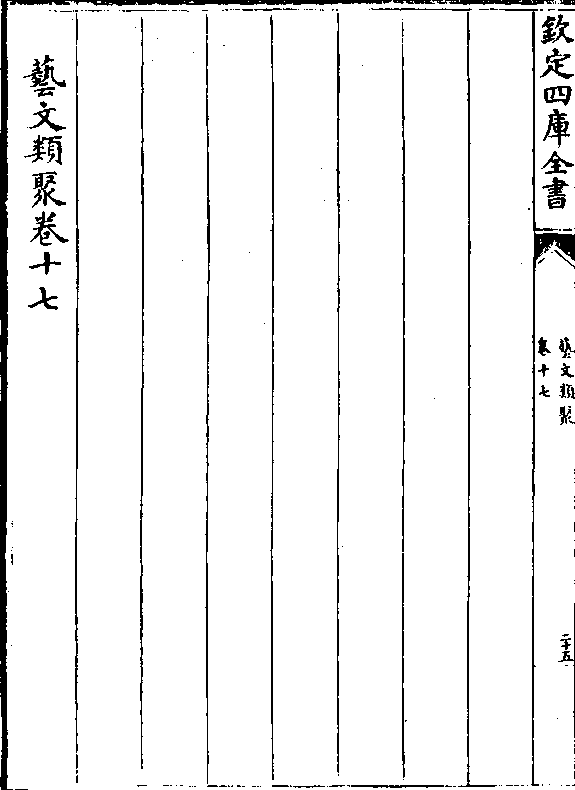 欽定四庫全書
藝文類聚
卷十七
二十五
藝文類聚卷十七